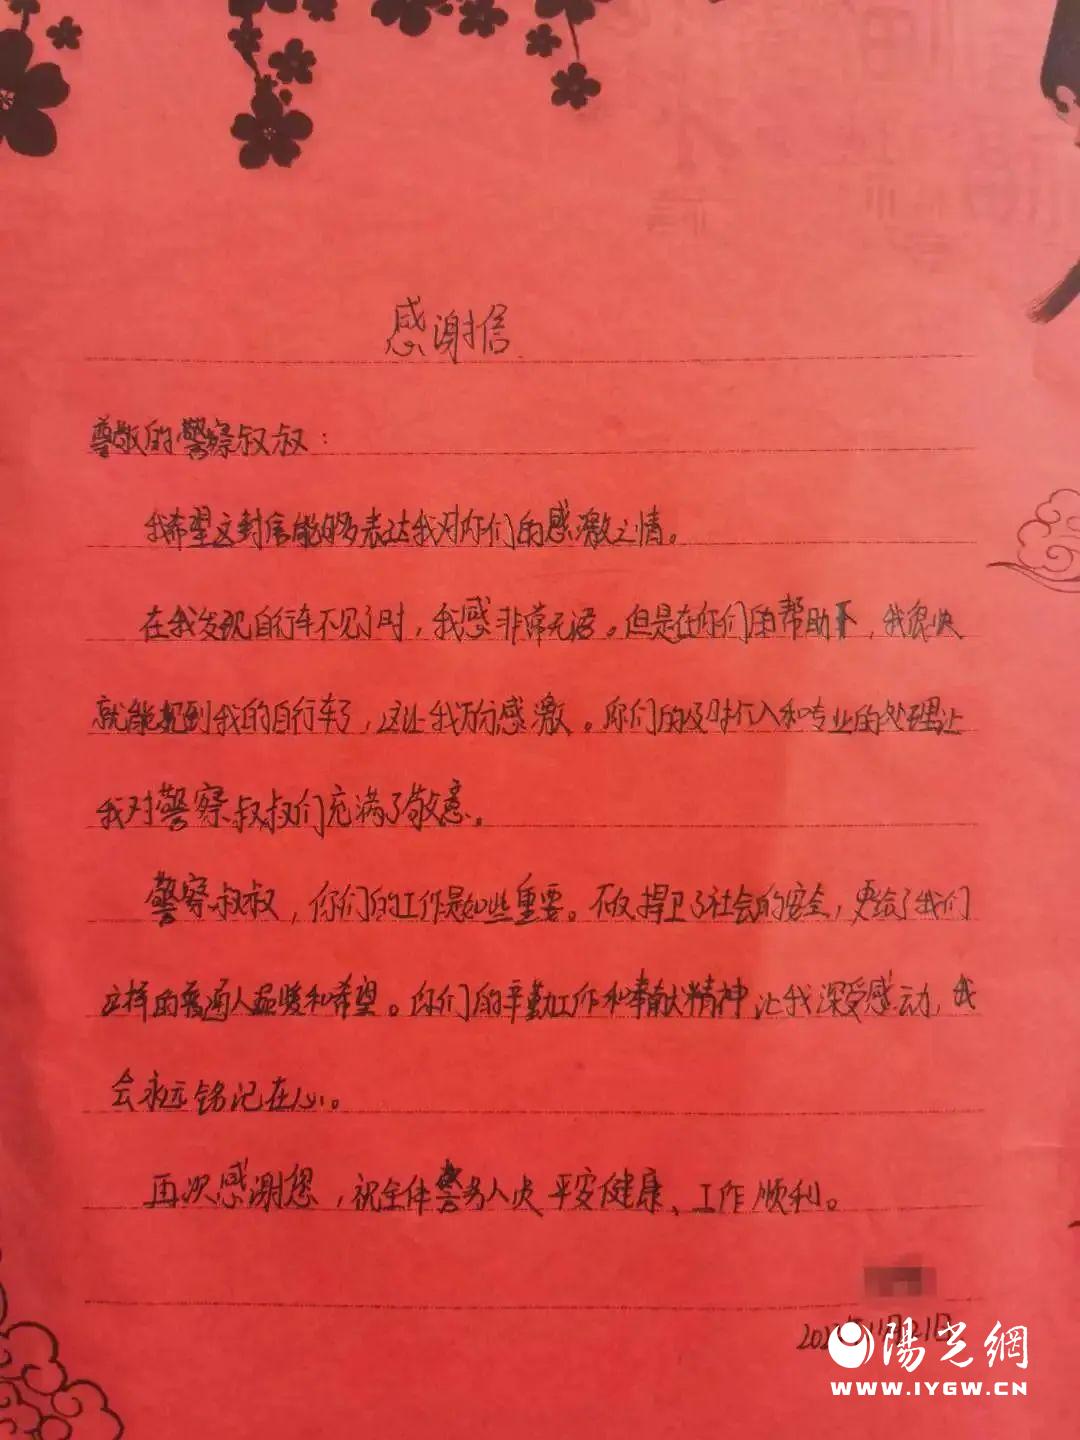 感谢信
尊敬的警察叔叔：
我希望这封信能够表达我对你们的感激之情。
在我发现自行车不见了时，我感非常无语。但是在你们的帮助下，我很快
就能把到我的自行车了，这让我万分感激。你们的及时介入和专业的处理让
我对警察叔叔们充满了敬意。
警察叔叔，你们的工作是如些重要。不仅捍卫了社会的安全，更给了我们
这样的普通人温暖和希望。你们的辛勤工作和奉献精神让我深受感动，我
会永远铭记在心。
再次感谢您，祝全体警务人员平安健康、工作顺利。
11月21日
陽光網
WWW.IYGW.CN